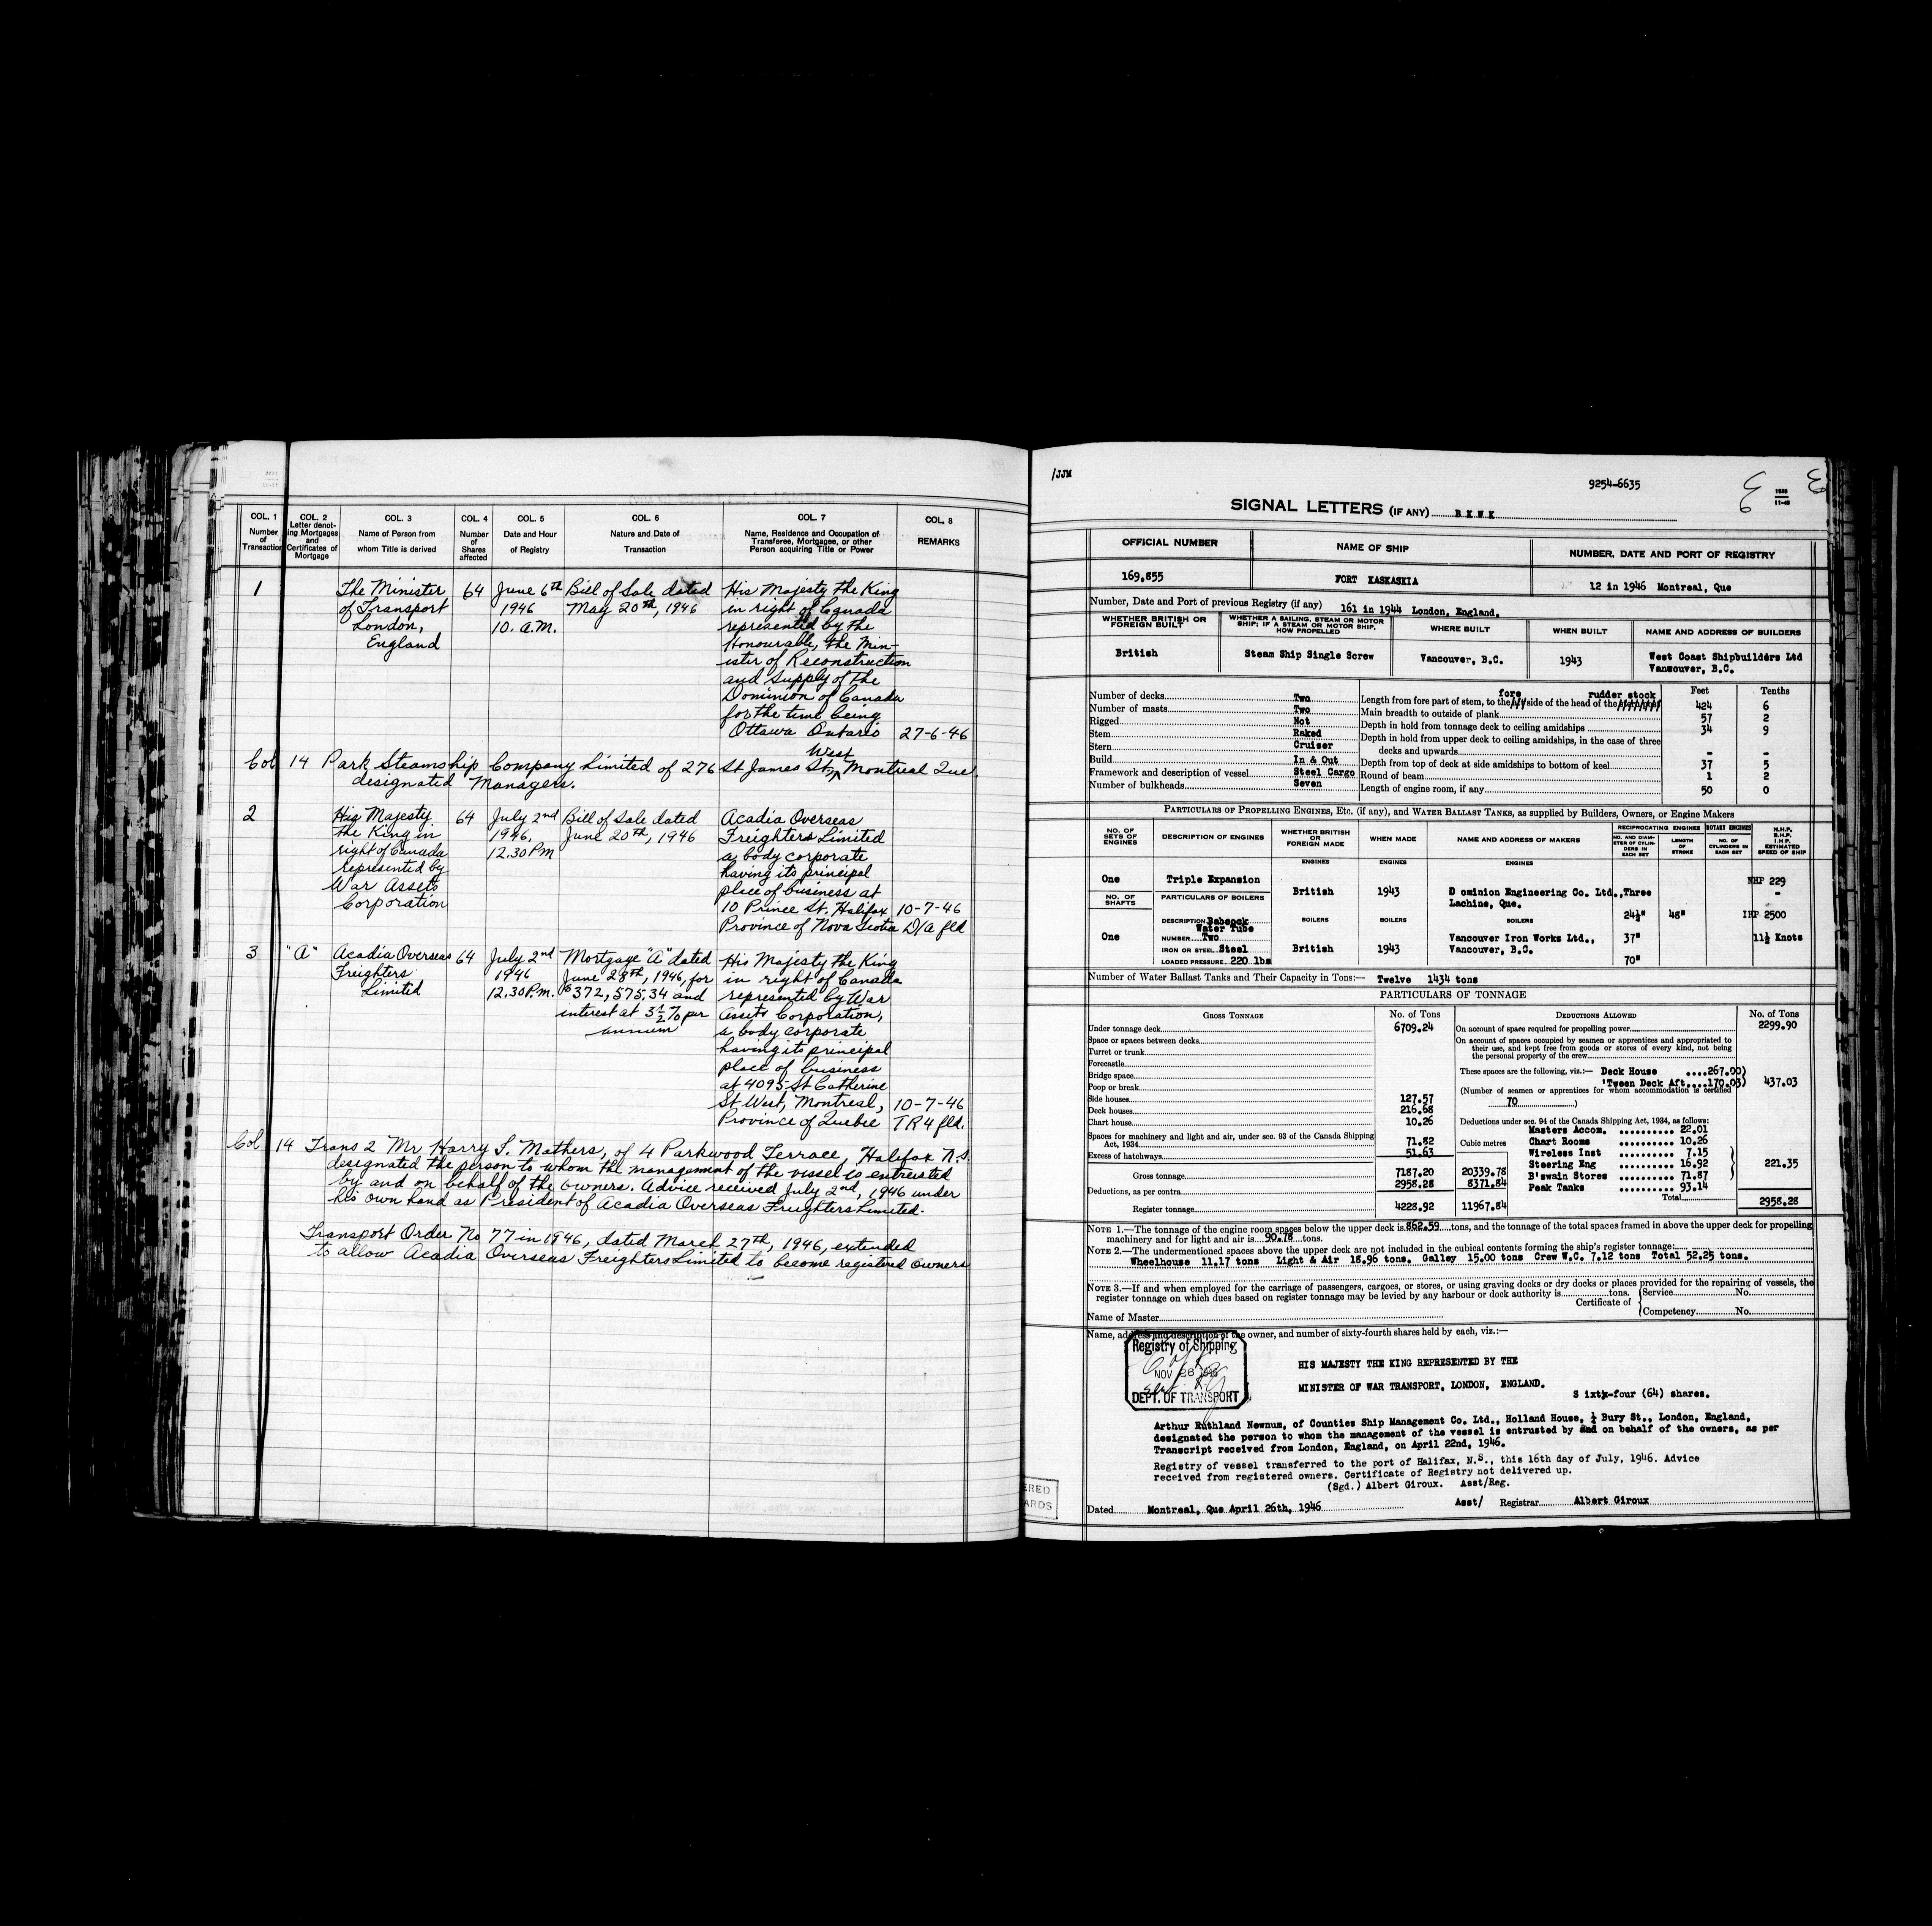 COL. 1
Number
of
Transaction
COL. 2
Letter denot-
ing Mortgages
and
Certificates of
Mortgage
COL. 3
Name of Person from
whom Title is derived
COL. 4
Number
of
Shares
affected
COL. 5
Date and Hour
of Registry
COL. 6
Nature and Date of
Transaction
COL. 7
Name, Residence and Occupation of
Transferee, Mortgagee, or other
Person acquiring Title or Power
COL. 8
REMARKS
1
The Minister
of Transport
London,
England
64
June 6th
1946
10. A.M.
Bill of Sale dated
May 20th, 1946
His Majesty the King
in right of Canada
represented by the
Honourable, the Min-
ister of Reconstruction
and Supply of the
Dominion of Canada
for the time being
Ottawa Ontario
27-6-46
West
Col 14 Park Steamship Company Limited of 276 St James St, Montreal Que
designated Managers.
2
His Majesty
the King in
right of Canada
represented by
War Assets
Corporation
64
July 2nd
1946,
12.30 PM
Bill of Sale dated
June 20th, 1946
Acadia Overseas
Freighters Limited
a body corporate
having its principal
place of business at
10 Prince St. Halifax
Province of Nova Scotia
10-7-46
D/A fld
3
"A"
Acadia Overseas
Freighters
Limited
64
July 2nd
1946
12.30 P.M.
Mortgage "A" dated
June 28th, 1946, for
$372,575.34 and
interest at 3½% per
annum
His Majesty the King
in right of Canada
represented by War
Assets Corporation,
a body corporate
having its principal
place of business
at 4095 St Catherine
St West, Montreal,
Province of Quebec
10-7-46
TR4 fld.
Col 14 Trans 2 Mr Harry I. Mathers, of 4 Parkwood Terrace, Halifax N.S.
designated the person to whom the management of the vessel is entrusted
by and on behalf of the owners. Advice received July 2nd, 1946 under
his own hand as President of Acadia Overseas Freighters Limited.
Transport Order No 77 in 1946, dated March 27th, 1946, extended
to allow Acadia Overseas Freighters Limited to become registered owners
/JJM
9254-6635
SIGNAL LETTERS (IF ANY) BKWK
OFFICIAL NUMBER
NAME OF SHIP
NUMBER, DATE AND PORT OF REGISTRY
169,855
FORT KASKASKIA
12 in 1946 Montreal, Que
Number, Date and Port of previous Registry (if any) 161 in 1944 London, England.
WHETHER BRITISH OR
FOREIGN BUILT
WHETHER A SAILING, STEAM OR MOTOR
SHIP; IF A STEAM OR MOTOR SHIP,
HOW PROPELLED
WHERE BUILT
WHEN BUILT
NAME AND ADDRESS OF BUILDERS
British
Steam Ship Single Screw
Vancouver, B.C.
1943
West Coast Shipbuilders Ltd
Vancouver, B.C.
Number of decks Two
Number of masts Two
Rigged Not
Stem Raked
Stern Cruiser
Build In & Out
Framework and description of vessel Steel Cargo
Number of bulkheads Seven
Feet
Tenths
fore rudder stock
Length from fore part of stem, to the side of the head of the 424 6
Main breadth to outside of plank 57 2
Depth in hold from tonnage deck to ceiling amidships 34 9
Depth in hold from upper deck to ceiling amidships, in the case of three
decks and upwards - -
Depth from top of deck at side amidships to bottom of keel 37 5
Round of beam 1 2
Length of engine room, if any 50 0
PARTICULARS OF PROPELLING ENGINES, ETC. (if any), and WATER BALLAST TANKS, as supplied by Builders, Owners, or Engine Makers
NO. OF
SETS OF
ENGINES
DESCRIPTION OF ENGINES
WHETHER BRITISH
OR
FOREIGN MADE
WHEN MADE
NAME AND ADDRESS OF MAKERS
RECIPROCATING ENGINES
NO. AND DIAM-
ETER OF CYLIN-
DERS IN
EACH SET
LENGTH
OF
STROKE
ROTARY ENGINES
NO. OF
CYLINDERS IN
EACH SET
N.H.P.
B.H.P.
I.H.P.
ESTIMATED
SPEED OF SHIP
ENGINES
ENGINES
ENGINES
One
Triple Expansion
British
1943
Dominion Engineering Co. Ltd.,
Lachine, Que.
Three
NHP 229
-
NO. OF
SHAFTS
PARTICULARS OF BOILERS
24½"
48"
IHP 2500
DESCRIPTION Babcock
Water Tube
BOILERS
BOILERS
BOILERS
One
NUMBER Two
IRON OR STEEL Steel
LOADED PRESSURE 220 lbs
British
1943
Vancouver Iron Works Ltd.,
Vancouver, B.C.
37"
70"
11½ Knots
Number of Water Ballast Tanks and Their Capacity in Tons:— Twelve 1434 tons
PARTICULARS OF TONNAGE
GROSS TONNAGE
No. of Tons
DEDUCTIONS ALLOWED
No. of Tons
Under tonnage deck 6709.24
Space or spaces between decks
Turret or trunk
Forecastle
Bridge space
Poop or break
Side houses 127.57
Deck houses 216.68
Chart house 10.26
Spaces for machinery and light and air, under sec. 93 of the Canada Shipping
Act, 1934 71.82
Excess of hatchways 51.63
Gross tonnage 7187.20 20339.78
Deductions, as per contra 2958.28 8371.84
Register tonnage 4228.92 11967.84
Cubic metres
On account of space required for propelling power 2299.90
On account of spaces occupied by seamen or apprentices and appropriated to
their use, and kept free from goods or stores of every kind, not being
the personal property of the crew
These spaces are the following, viz.:— Deck House ....267.00)
'Tween Deck Aft....170.03) 437.03
(Number of seamen or apprentices for whom accommodation is certified
70 )
Deductions under sec. 94 of the Canada Shipping Act, 1934, as follows:
Masters Accom. .......... 22.01
Chart Rooms .......... 10.26
Wireless Inst .......... 7.15
Steering Eng .......... 16.92
B'swain Stores .......... 71.87
Peak Tanks .......... 93.14
221.35
Total 2958.28
NOTE 1.—The tonnage of the engine room spaces below the upper deck is 862.59 tons, and the tonnage of the total spaces framed in above the upper deck for propelling
machinery and for light and air is 90.78 tons.
NOTE 2.—The undermentioned spaces above the upper deck are not included in the cubical contents forming the ship's register tonnage:
Wheelhouse 11.17 tons Light & Air 18.96 tons. Galley 15.00 tons Crew W.C. 7.12 tons Total 52.25 tons.
NOTE 3.—If and when employed for the carriage of passengers, cargoes, or stores, or using graving docks or dry docks or places provided for the repairing of vessels, the
register tonnage on which dues based on register tonnage may be levied by any harbour or dock authority is tons.
Certificate of
Service No.
Competency No.
Name of Master
Name, address and description of the owner, and number of sixty-fourth shares held by each, viz.:—
Registry of Shipping
NOV 28 1946
DEPT. OF TRANSPORT
HIS MAJESTY THE KING REPRESENTED BY THE
MINISTER OF WAR TRANSPORT, LONDON, ENGLAND.
Sixty-four (64) shares.
Arthur Ruthland Newnum, of Counties Ship Management Co. Ltd., Holland House, ¼ Bury St., London, England,
designated the person to whom the management of the vessel is entrusted by and on behalf of the owners, as per
Transcript received from London, England, on April 22nd, 1946.
Registry of vessel transferred to the port of Halifax, N.S., this 16th day of July, 1946. Advice
received from registered owners. Certificate of Registry not delivered up.
(Sgd.) Albert Giroux. Asst/Reg.
Dated Montreal, Que April 26th, 1946 Asst/ Registrar Albert Giroux